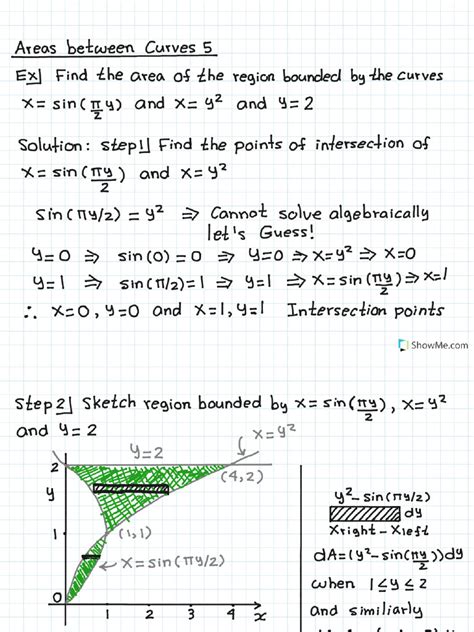 Areas between Curves 5
Ex] Find the area of the region bounded by the curves
x = sin(π/2 y) and x = y² and y = 2
Solution: step1] Find the points of intersection of
x = sin(πy/2) and x = y²
sin(πy/2) = y² ⇒ Cannot solve algebraically
let's Guess!
y=0 ⇒ sin(0) = 0 ⇒ y=0 ⇒ x=y² ⇒ x=0
y=1 ⇒ sin(π/2)=1 ⇒ y=1 ⇒ x=sin(πy/2) ⇒ x=1
∴ x=0, y=0 and x=1, y=1 Intersection points
ShowMe.com
Step2] Sketch region bounded by x=sin(πy/2), x=y²
and y=2
y=2
x=y²
2
(4,2)
y
1
(1,1)
x=sin(πy/2)
0
1 2 3 4 x
y²-sin(πy/2)
dy
xright - xleft
dA=(y²-sin(πy/2))dy
when 1≤y≤2
and similiarly